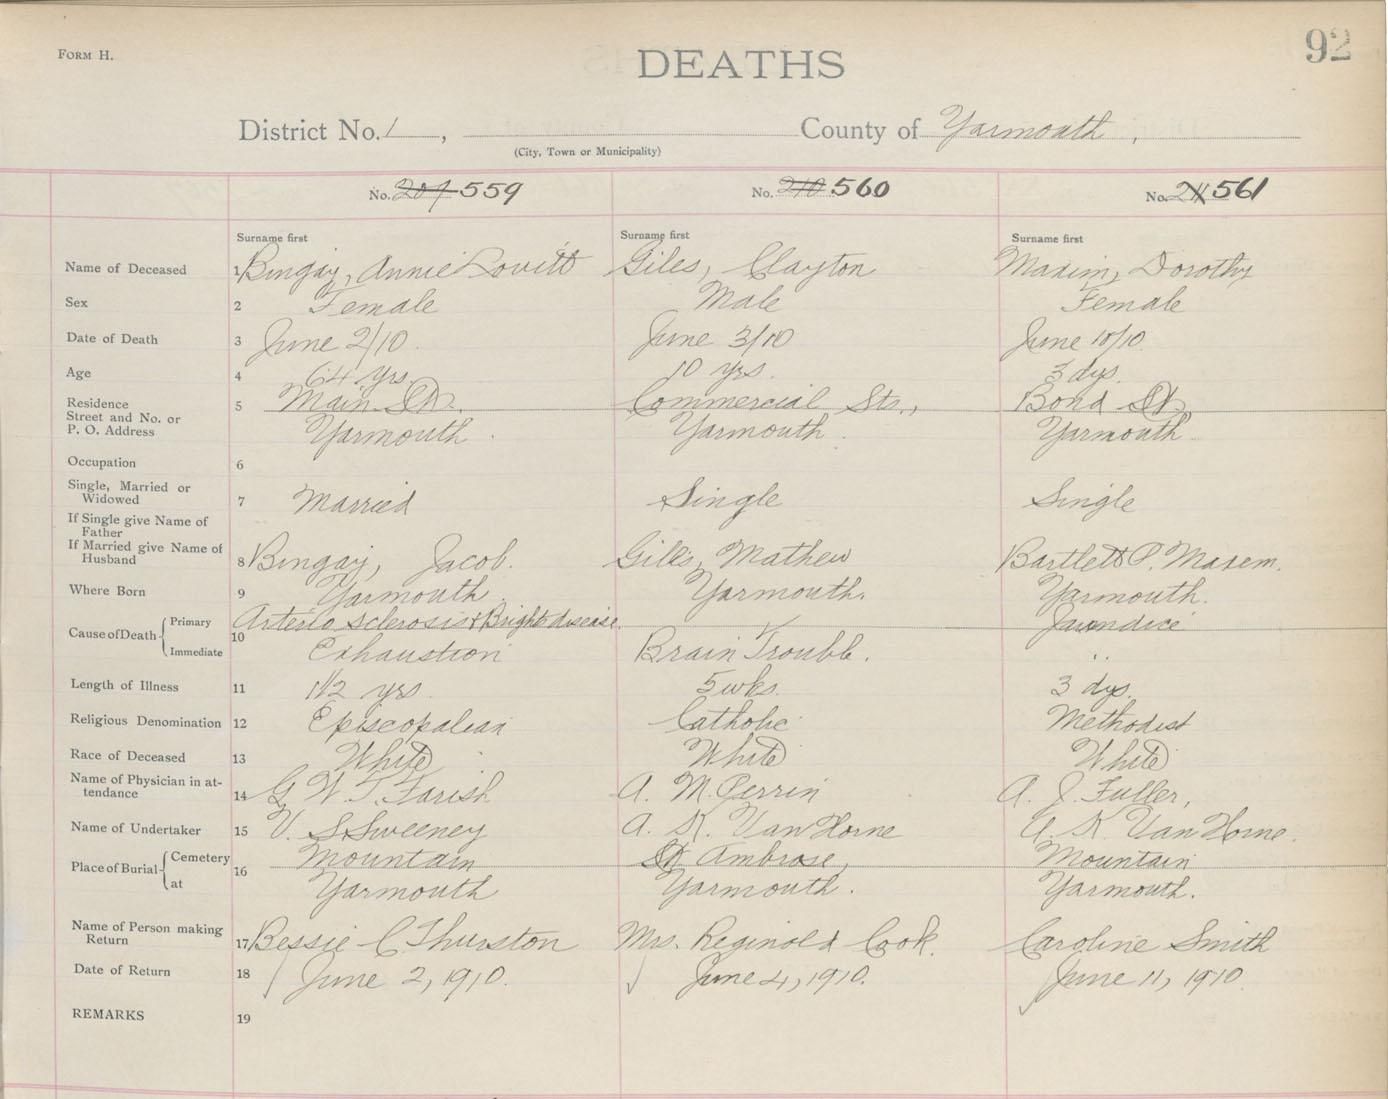 FORM H.
DEATHS
92
District No. 1, County of Yarmouth,
(City, Town or Municipality)
No. 209 559 No. 210 560 No. 211 561
Surname first Surname first Surname first
Name of Deceased 1 Bingay, Annie Lovitt Giles, Clayton Maxim, Dorothy
Sex 2 Female Male Female
Date of Death 3 June 2/10 June 3/10 June 10/10
Age 4 64 yrs. 10 yrs. 3 dys.
Residence 5 Main St., Commercial Sts., Bond St,
Street and No. or
P. O. Address Yarmouth. Yarmouth. Yarmouth.
Occupation 6
Single, Married or
Widowed 7 Married Single Single
If Single give Name of
Father
If Married give Name of
Husband 8 Bingay, Jacob. Giles, Mathew Bartlett P. Maxem.
Where Born 9 Yarmouth. Yarmouth. Yarmouth.
Cause of Death Primary 10 Arterio sclerosis & Brights disease. Jaundice
Immediate Exhaustion Brain Trouble. "
Length of Illness 11 1 1/2 yrs. 5 wks. 3 dys.
Religious Denomination 12 Episcopalian Catholic Methodist
Race of Deceased 13 White White White
Name of Physician in at-
tendance 14 G. W. T. Farish A. M. Perrin A. J. Fuller,
Name of Undertaker 15 V. S. Sweeney A. K. Van Horne A. K. Van Horne.
Place of Burial Cemetery 16 Mountain St Ambrose, Mountain
at Yarmouth Yarmouth. Yarmouth.
Name of Person making
Return 17 Bessie C Thurston Mrs. Reginold Cook. Caroline Smith
Date of Return 18 June 2, 1910. June 4, 1910. June 11, 1910.
REMARKS 19